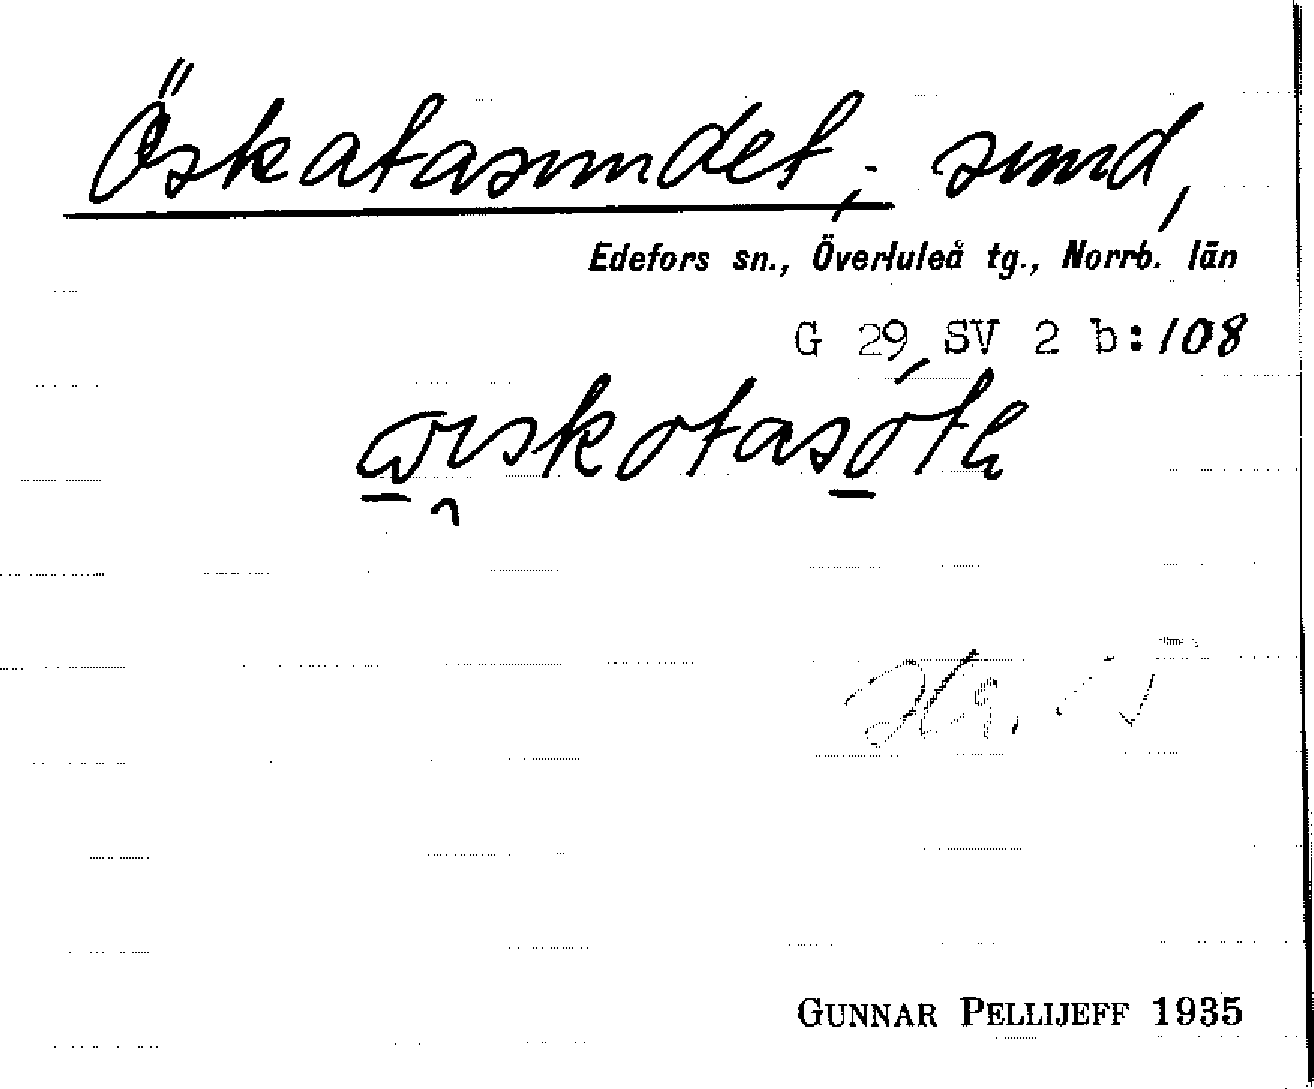 Öskatasundet; sund,
Edefors sn., Överluleå tg., Norrb. län
G 29 SV 2 b:108
GUNNAR PELLIJEFF 1935